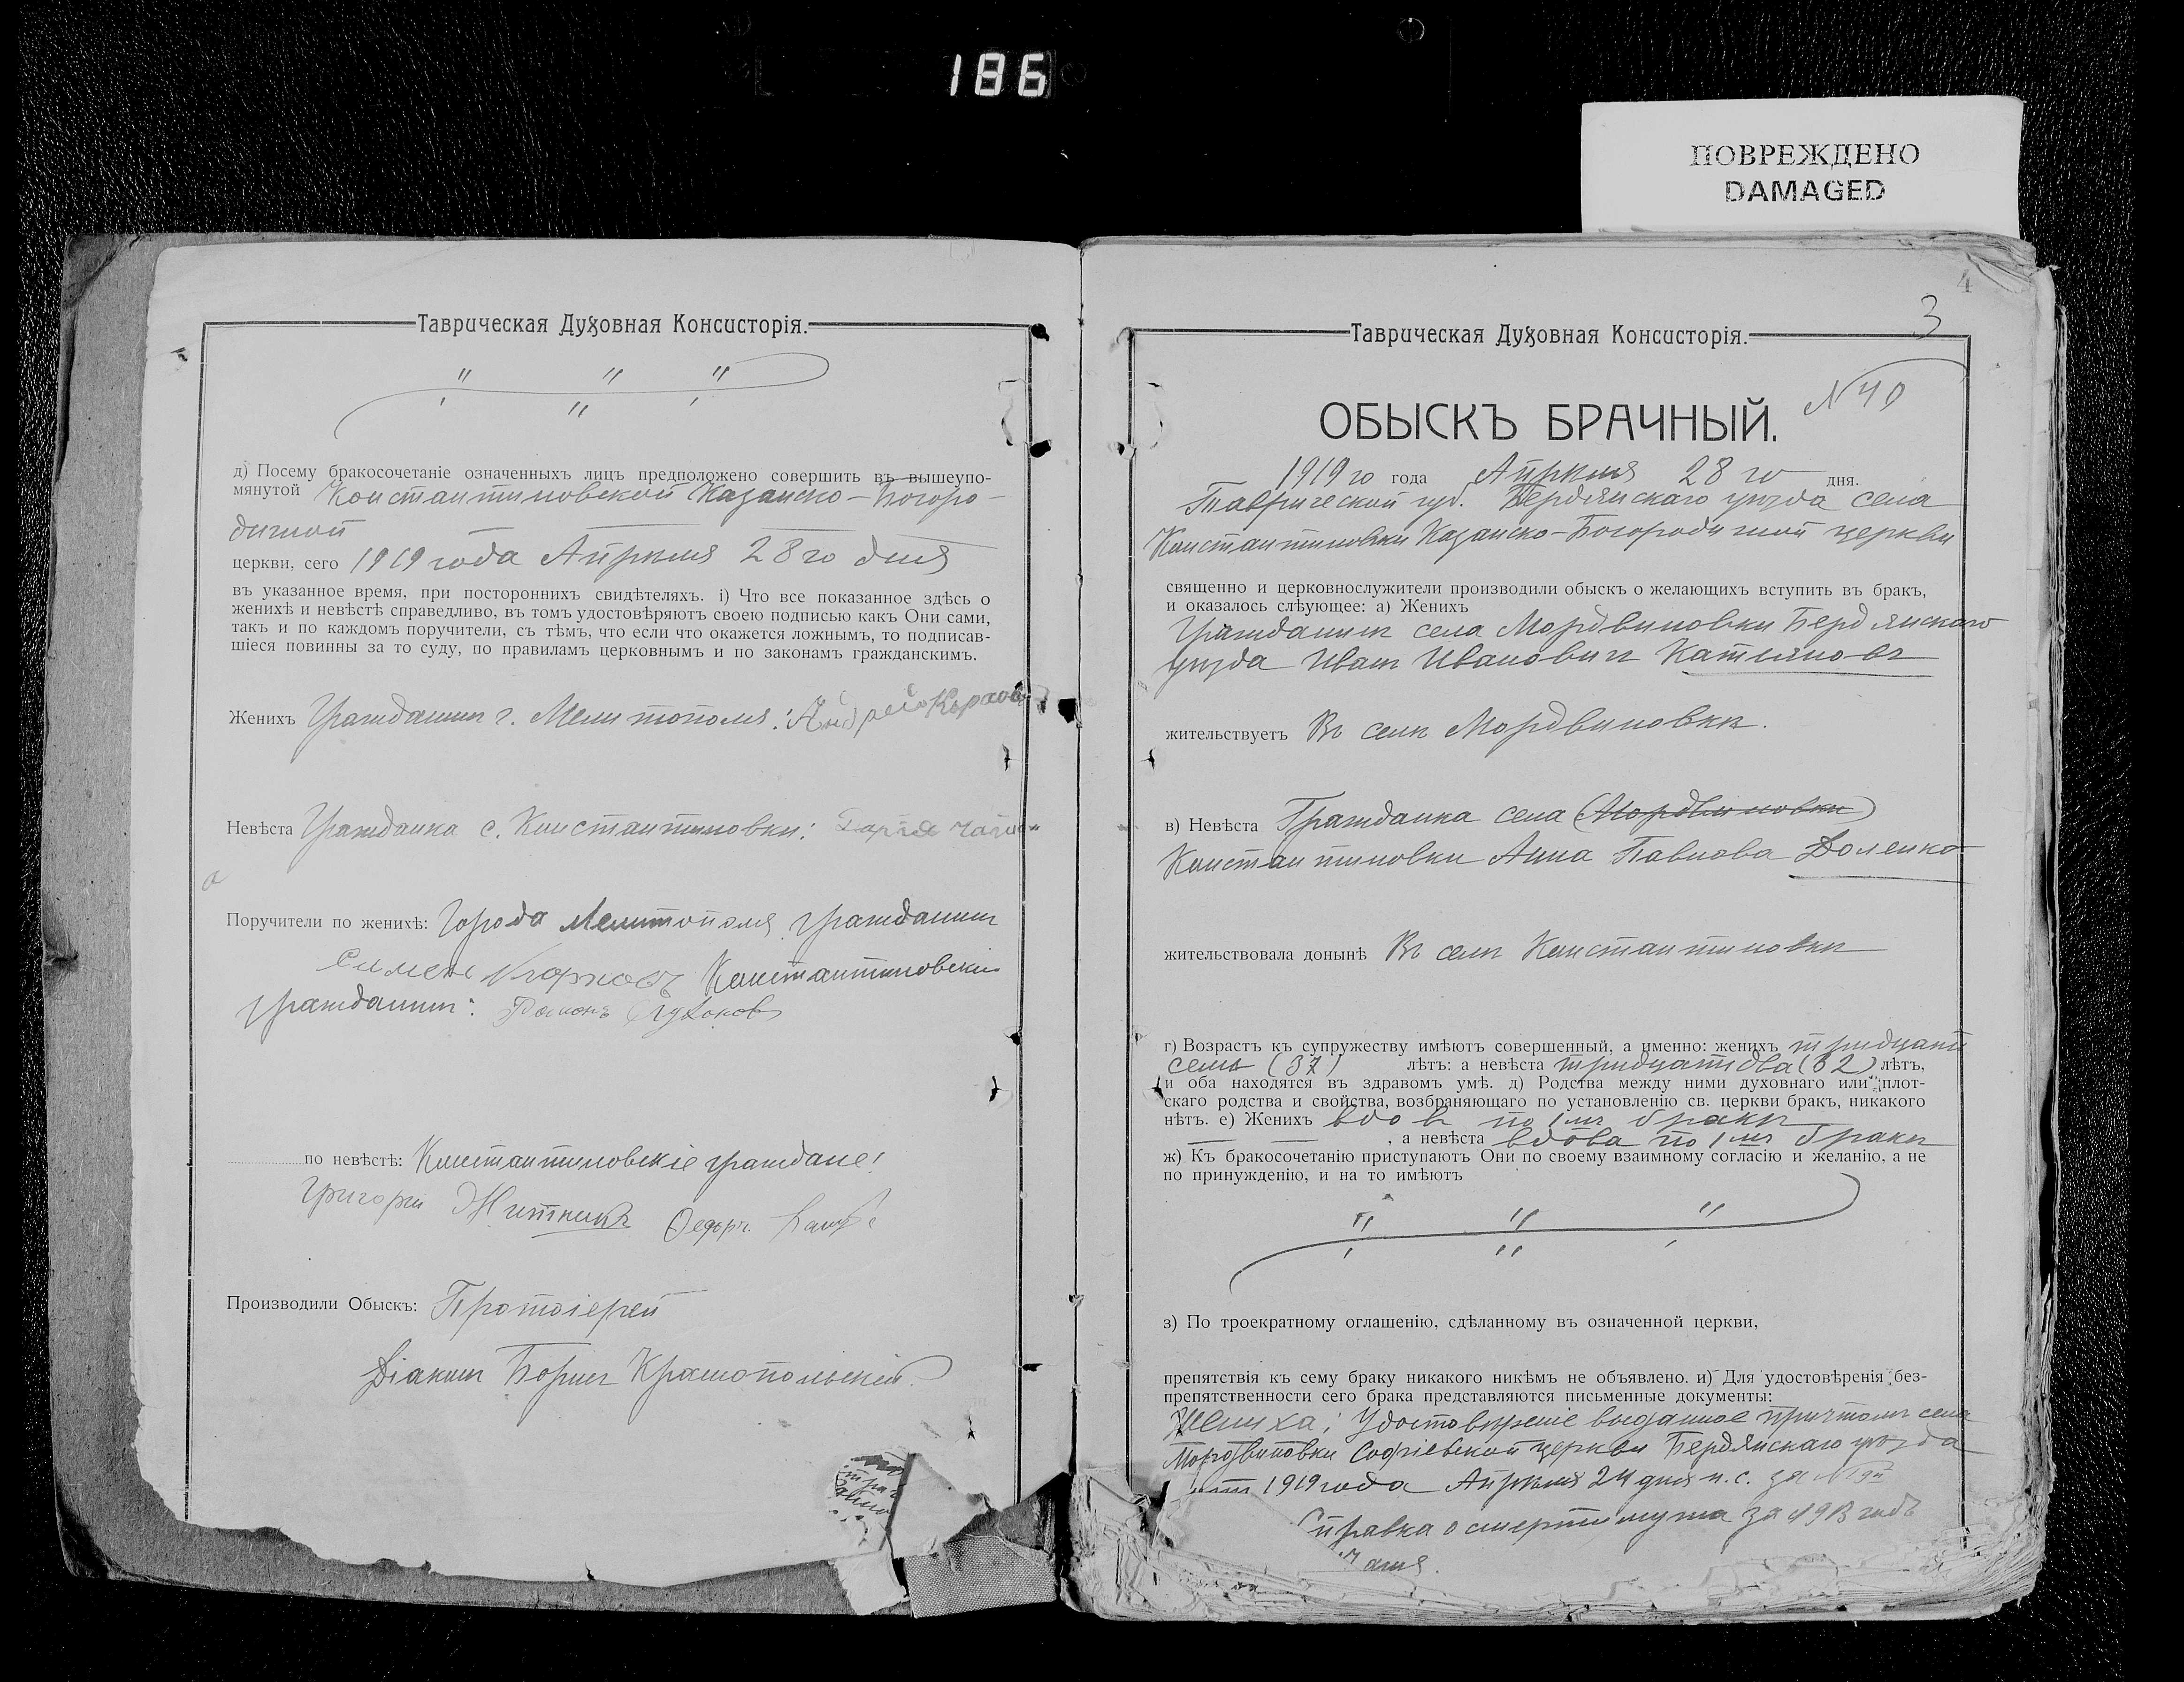 186
ПОВРЕЖДЕНО
DAMAGED
Таврическая Духовная Консисторія.
д) Посему бракосочетаніе означенныхъ лицъ предположено совершить въ вышеупо-
мянутой Константиновской Казанско-Богоро-
дичной
церкви, сего 1919 года Апрѣля 28 го дня
въ указанное время, при постороннихъ свидѣтеляхъ. і) Что все показанное здѣсь о
женихѣ и невѣстѣ справедливо, въ томъ удостовѣряютъ своею подписью какъ Они сами,
такъ и по каждомъ поручители, съ тѣмъ, что если что окажется ложнымъ, то подписав-
шіеся повинны за то суду, по правиламъ церковнымъ и по законамъ гражданскимъ.
Женихъ Гражданин г. Мелитополя: Андрей
Невѣста Гражданка с. Константиновки: Дарія
Поручители по женихѣ: Города Мелитополя гражданин
Симен Константиновски
гражданин: Романъ
по невѣстѣ: Константиновскіе граждане:
Григорій Житникъ Федоръ
Производили Обыскъ: Протоіерей
Діакон Борис Краснопольскій.
4
3
Таврическая Духовная Консисторія.
N 40
ОБЫСКЪ БРАЧНЫЙ.
1919 го года Апрѣля 28 го дня.
Таврической губ. Бердянскаго уѣзда села
Константиновки Казанско-Богородичной церкви
священно и церковнослужители производили обыскъ о желающихъ вступить въ бракъ,
и оказалось слѣующее: а) Женихъ
Гражданин села Мордвиновки Бердянскаго
уѣзда Иван Иванович
жительствуетъ Въ селѣ Мордвиновкѣ.
в) Невѣста Гражданка села (Мордвиновки)
Константиновки Анна Павлова Доленко
жительствовала донынѣ Въ селѣ Константиновкѣ
г) Возрастъ къ супружеству имѣютъ совершенный, а именно: женихъ тридцать
семь (37) лѣтъ: а невѣста тридцать два (32) лѣтъ,
и оба находятся въ здравомъ умѣ. д) Родства между ними духовнаго или плот-
скаго родства и свойства, возбраняющаго по установленію св. церкви бракъ, никакого
нѣтъ. е) Женихъ вдов по 1 мъ бракѣ
, а невѣста вдова по 1 мъ бракѣ
ж) Къ бракосочетанію приступаютъ Они по своему взаимному согласію и желанію, а не
по принужденію, и на то имѣютъ
з) По троекратному оглашенію, сдѣланному въ означенной церкви,
препятствія къ сему браку никакого никѣмъ не объявлено. и) Для удостовѣренія без-
препятственности сего брака представляются письменные документы:
Жениха: Удостовѣреніе выданное причтомъ села
Мордвиновки Софіевской церкви Бердянскаго уѣзда
от 1919 года Апрѣля 24 дня н. с. за
Справка о смерти мужа за годъ